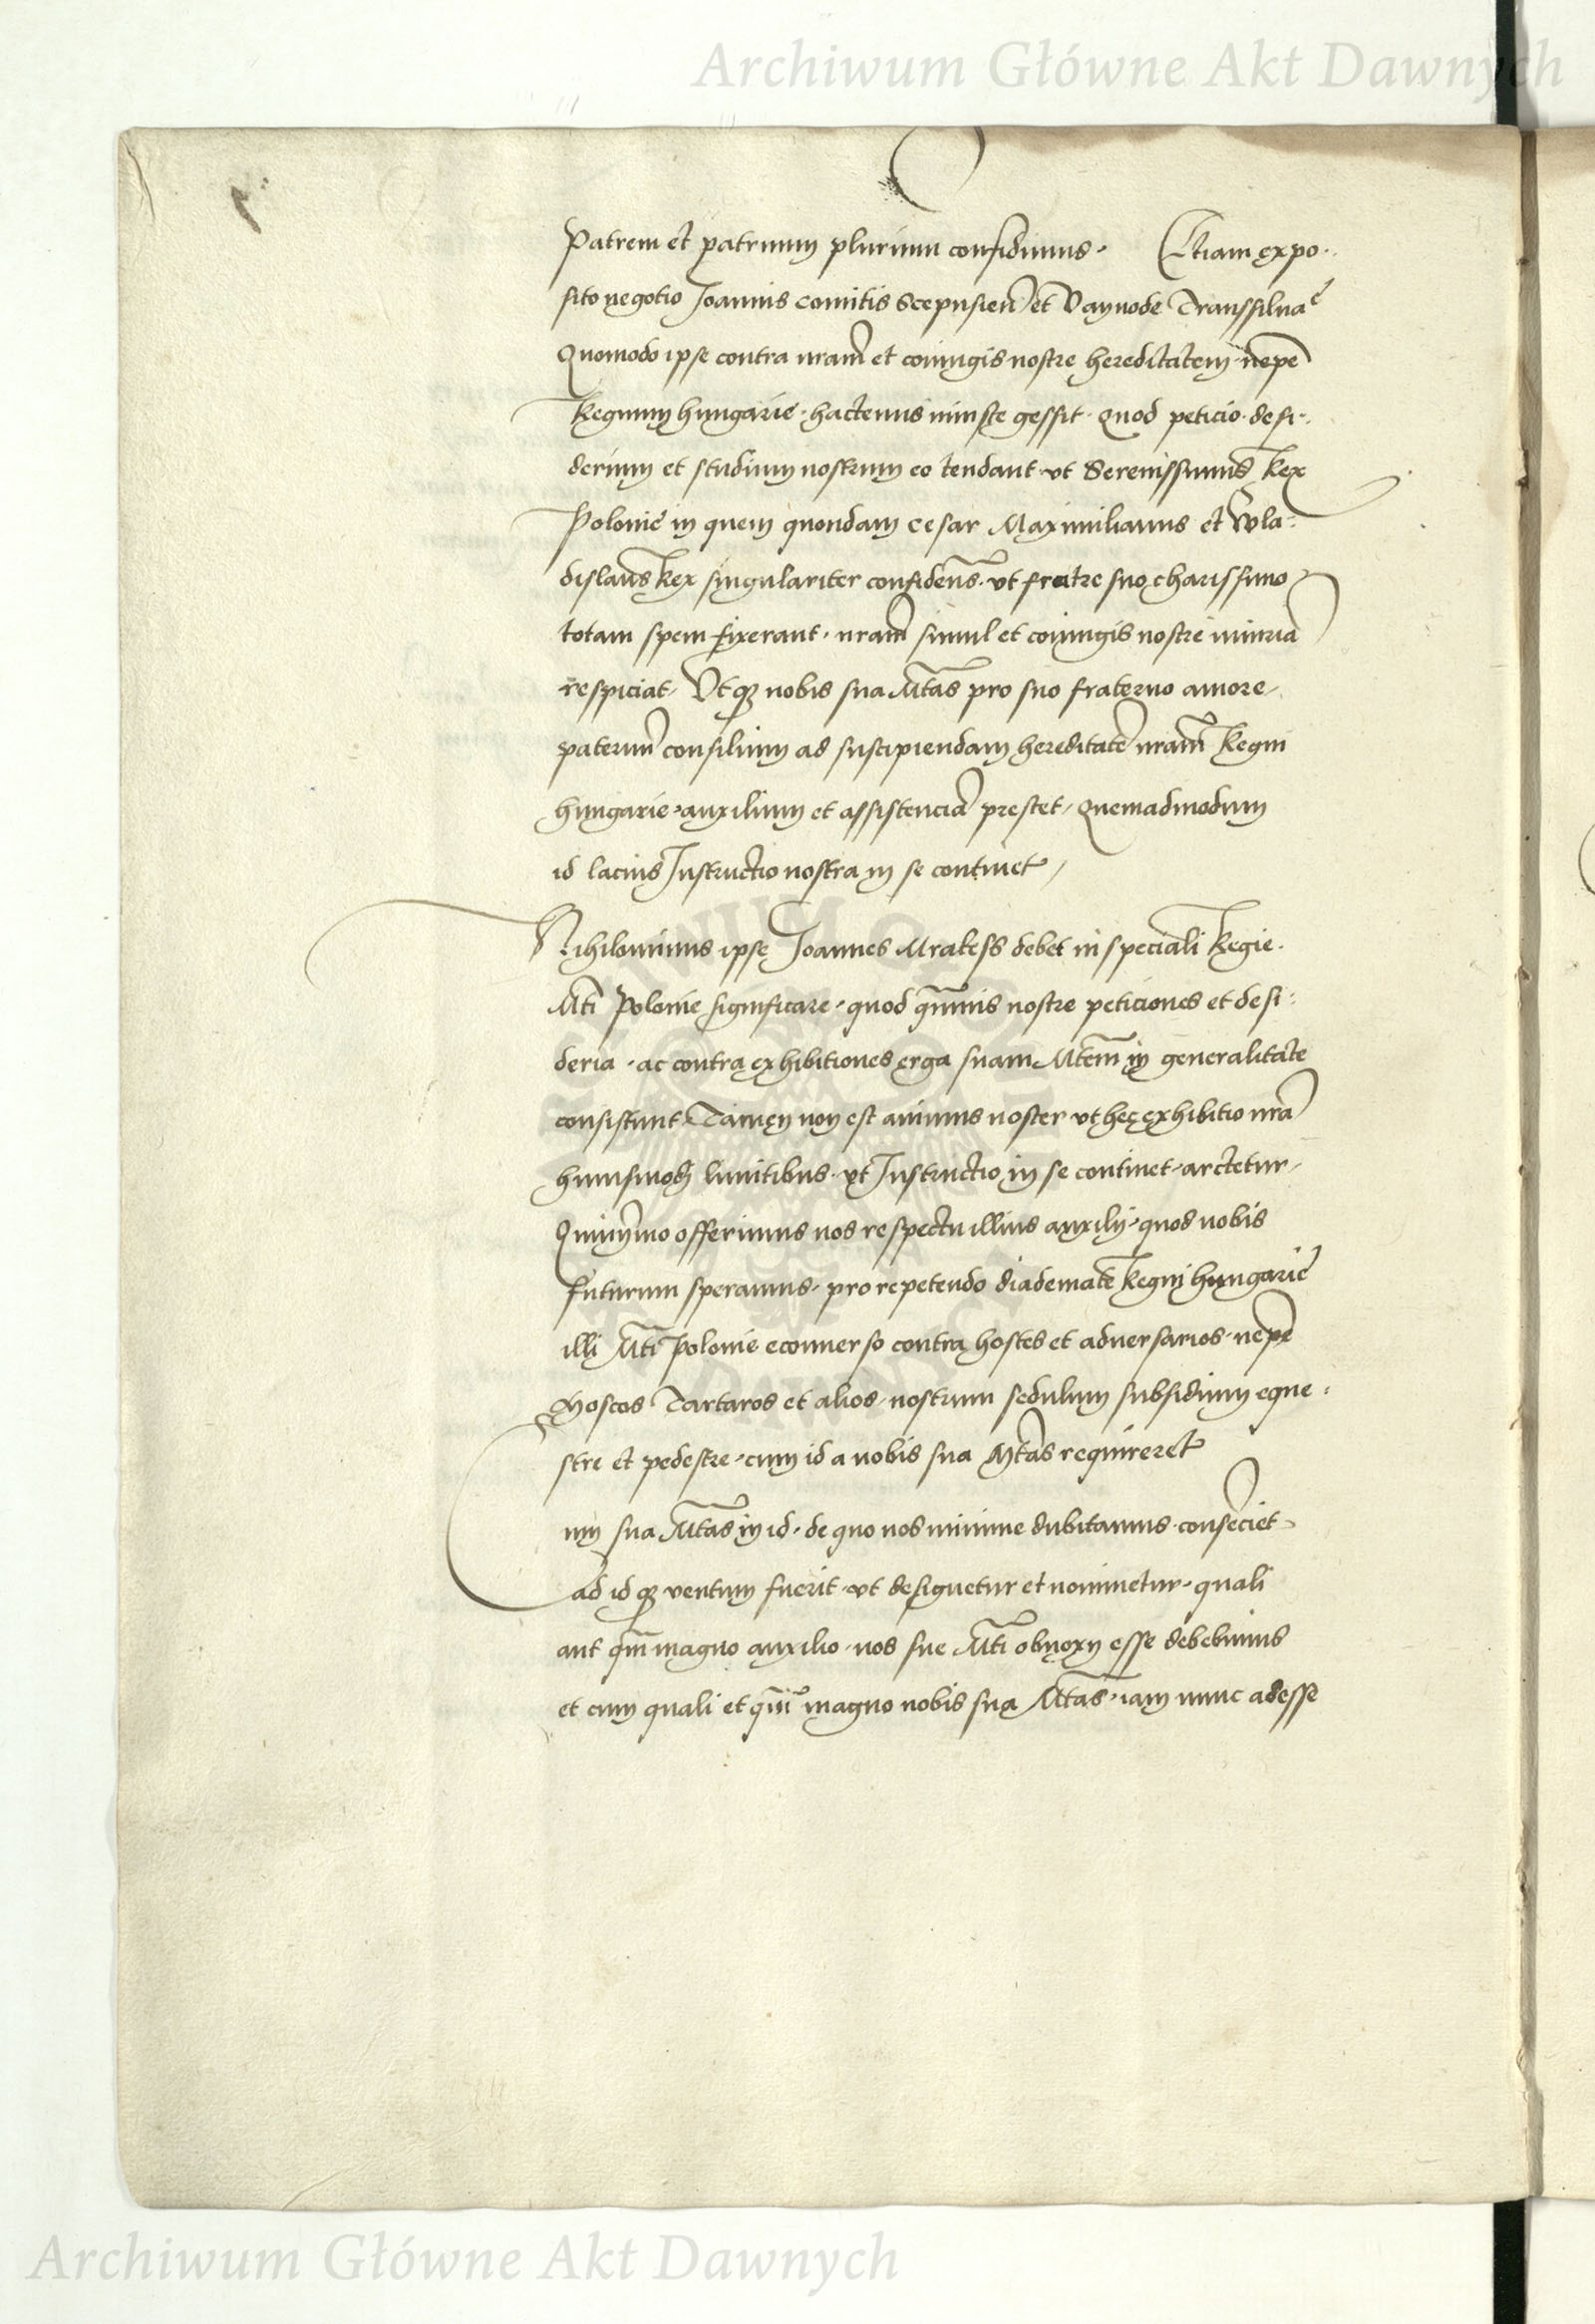 Archiwum Główne Akt Dawnych
Patrem et patruum plurimum confidimus. Etiam expo-
sito negotio Joannis comitis Scepusien̄ et Vayuode Transsiluae
Quomodo ipse contra nr̄am et coniugis nostre hereditatem nēpe
Regnum hungarie. hactenus iniuste gessit. Quod peticio. desi-
derium et studium nostrum eo tendant. vt Serenissimus Rex
Polonie in quem quondam cesar Maximilianus et Wla-
dislaus Rex singulariter confidens. vt fratre suo charissimo
totam spem fixerant. nr̄am simul et coniugis nostre iniuriā
respiciat, Vtq3 nobis sua Mtas pro suo fraterno amore,
paternū consilium ad suscipiendam hereditatē nr̄am Regni
hungarie, auxilium et assistenciā prestet, Quemadmodum
id lacius Instructio nostra in se continet,
Nihilominus ipse Joannes Mrakess debet in speciali Regie.
Mti Polonie significare, quod quāuis nostre peticiones et desi-
deria. ac contra exhibitiones erga suam Mtem in generalitate
consistunt Tamen non est animus noster vt hec exhibitio nr̄a
huiusmodj limitibus. vt Instructio in se continet, arctetur,
Quinȳmo offerimus nos respectu illius auxilij, quod nobis
futurum speramus, pro repetendo diademate Regni hungarie
illi Mti Polonie econuerso contra hostes et aduersarios, nēpe
Moscos Tartaros et alios, nostrum sedulum subsidium eque-
stre et pedestre, cum id a nobis sua Mtas requireret
um sua Mtas in id, de quo nos minime dubitamus, consenciet
ad idq3 ventum fuerit, vt designetur et nominetur, quali
aut qm̄ magno auxilio, nos sue Mti obnoxij esse debebimus
et cum quali et qm̄ magno nobis sua Mtas, iam nunc adesse
Archiwum Główne Akt Dawnych